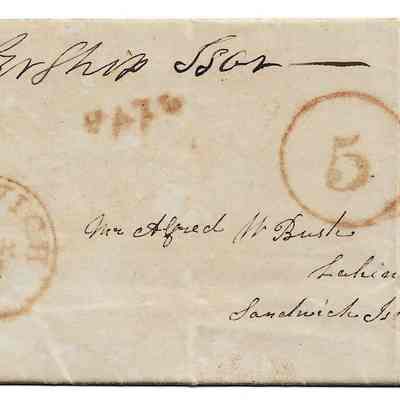 Per Ship Isor —
PAID
5
Mr Alfred W Bush
Lahin
Sandwich Is